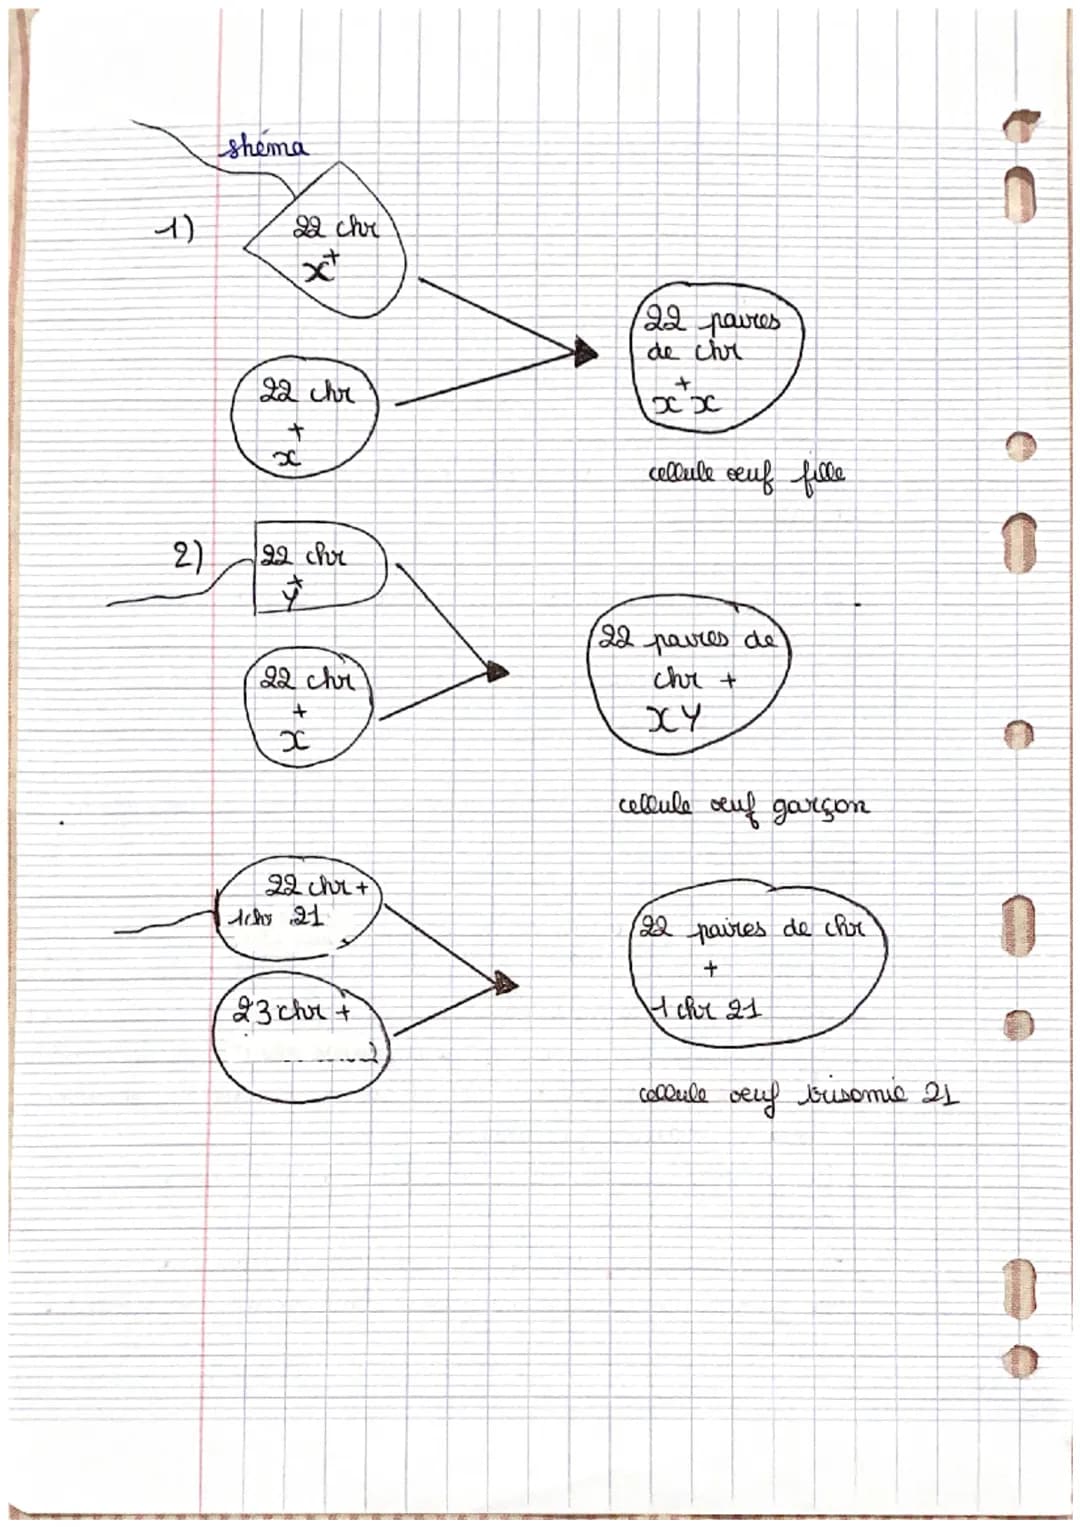 shéma
1)
22 chr
+
x
22 chr
+
x
22 paires
de chr
+
x x
cellule oeuf fille
2)
22 chr
+
y
22 chr
+
x
22 paires de
chr +
x y
cellule oeuf garçon
22 chr +
1 chr 21
23 chr +
22 paires de chr
+
1 chr 21
cellule oeuf trisomie 21